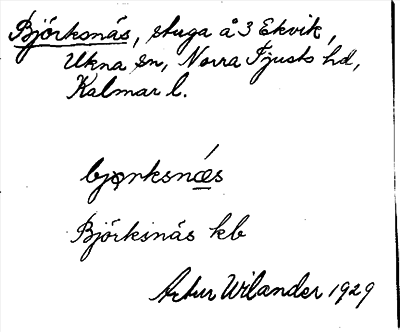 Björksnäs, stuga å 3 Ekvik,
Ukna sn, Norra Tjusts hd,
Kalmar l.
bjo̢rksnǽs
Björksnäs kb
Artur Wilander 1929